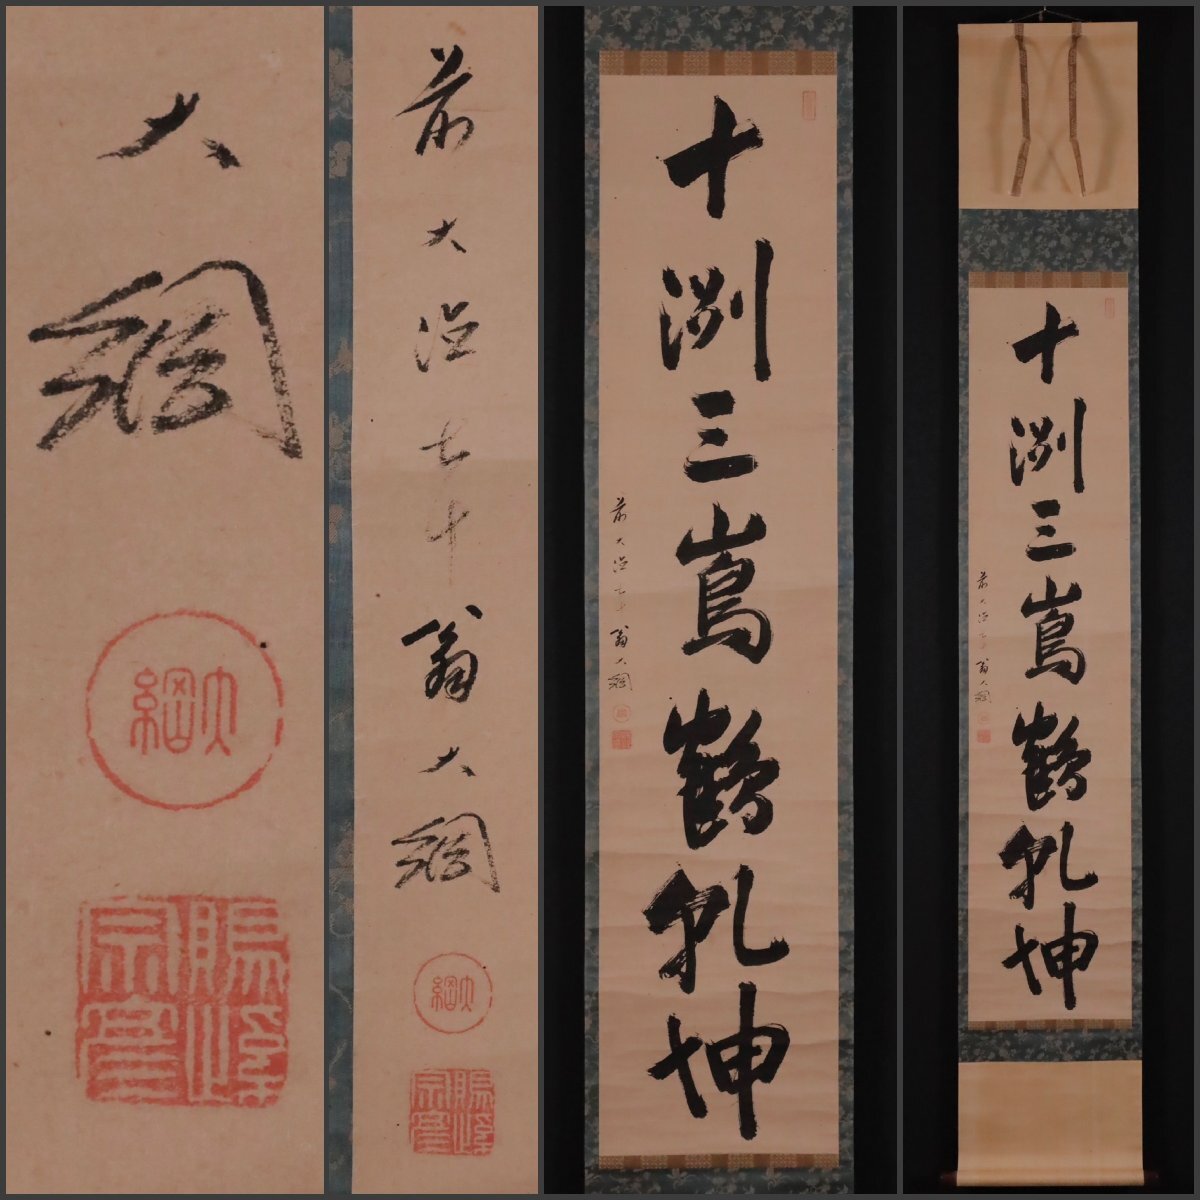 大綱
大綱
前大徳七十翁大綱
大綱
十洲三嶌鶴乾坤
前大徳七十翁大綱
十洲三嶌鶴乾坤
前大徳七十翁大綱